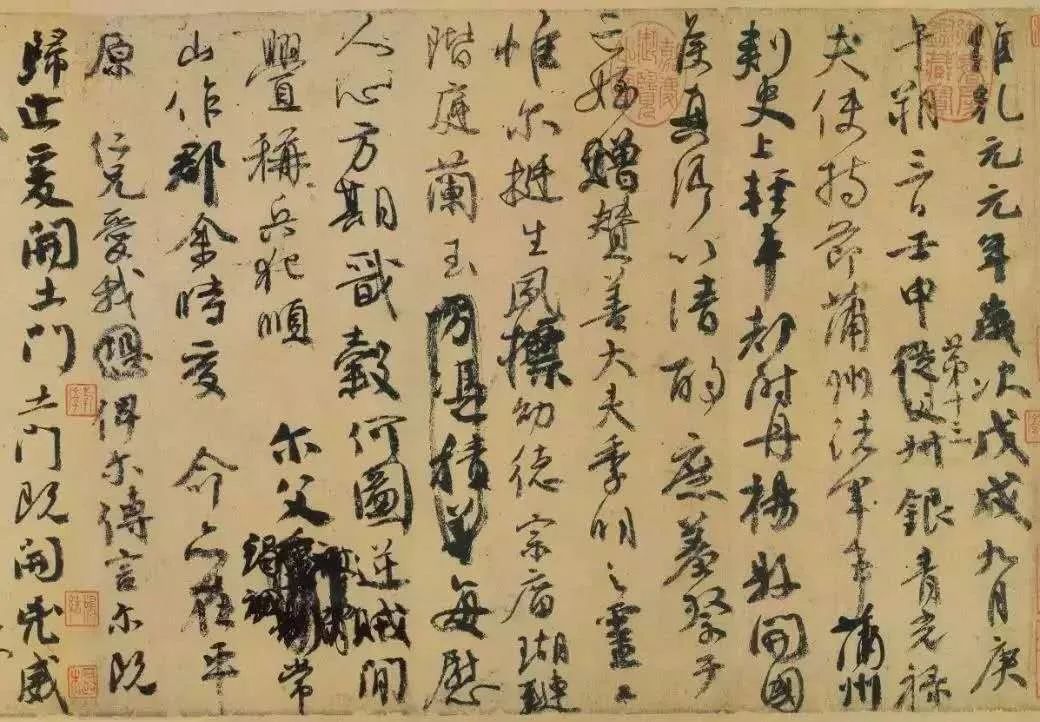 維乾元元年歲次戊戌九月庚
午朔三日壬申第十三
從父銀青光祿
夫使持節蒲州諸軍事蒲州
刺史上輕車都尉丹楊縣開國
侯真卿以清酌庶羞祭于
亡姪贈贊善大夫季明之靈曰
惟爾挺生夙標幼德宗廟瑚璉
階庭蘭玉方憑積善每慰
人心方期戩穀何圖逆賊間
釁稱兵犯順爾父竭誠常
山作郡余時受命亦在平
原仁兄愛我俾爾傳言爾既
歸止爰開土門土門既開兇威